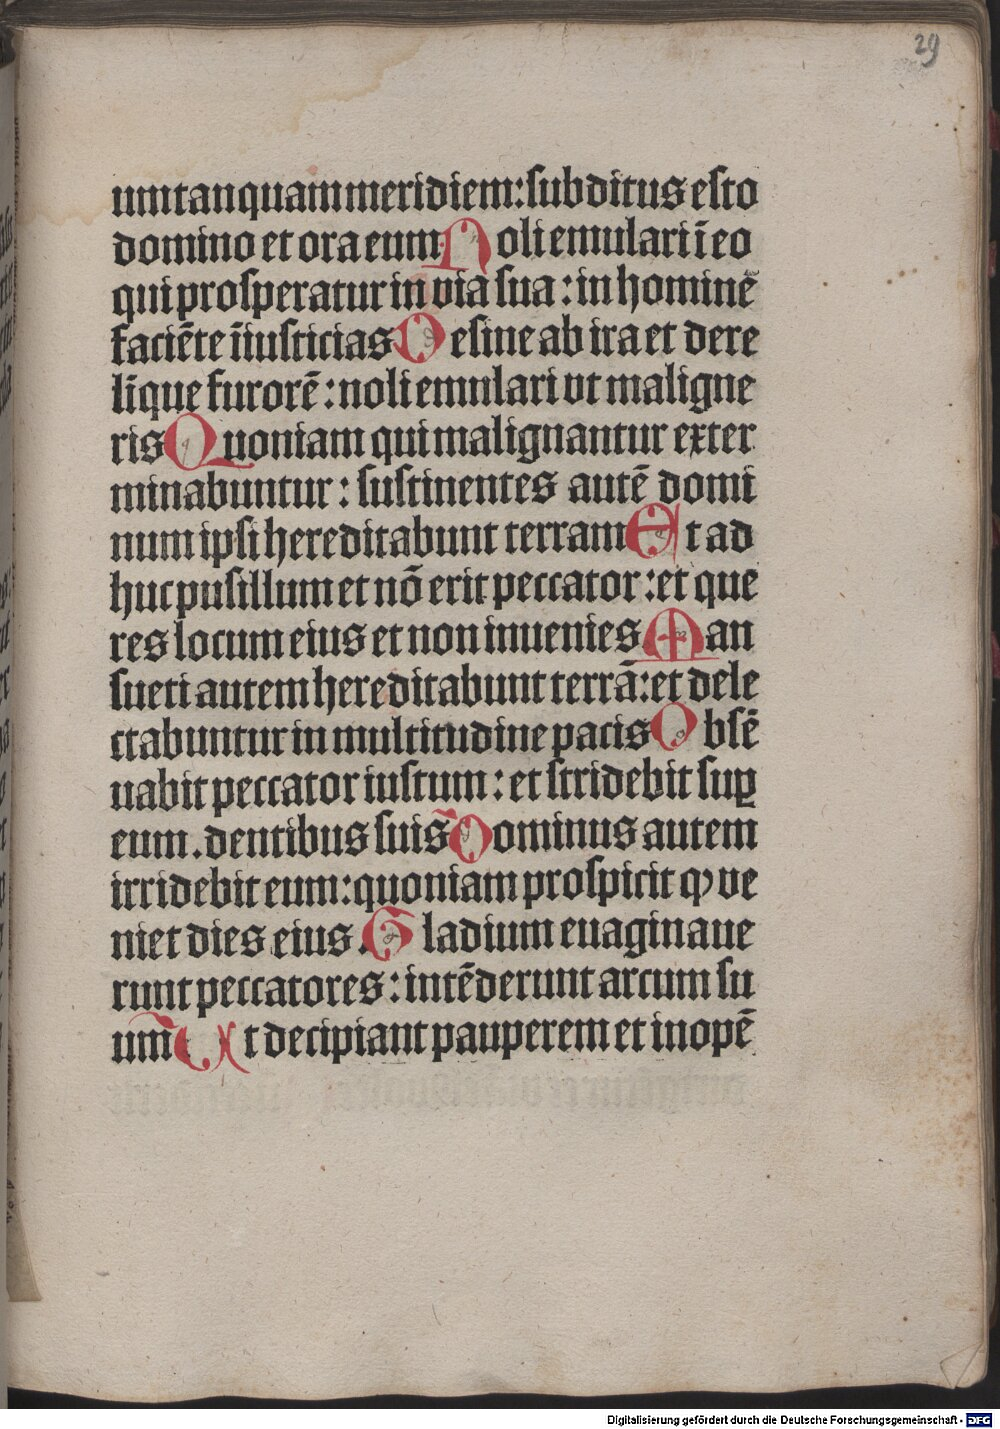 29
um tanquam meridiem: subditus esto
domino et ora eum Noli emulari ī eo
qui prosperatur in via sua: in hominē
faciēte īiusticias Desine ab ira et dere
līque furorē: noli emulari vt maligne
ris Quoniam qui malignantur exter
minabuntur: sustinentes autē domi
num ipsi hereditabunt terram Et ad
huc pusillum et nō erit peccator: et que
res locum eius et non inuenies Man
sueti autem hereditabunt terrā: et dele
ctabuntur in multitudine pacis Obsē
uabit peccator iustum: et stridebit suꝑ
eum. dentibus suis Dominus autem
irridebit eum: quoniam prospicit ꝙ ve
niet dies eius. Gladium euaginaue
runt peccatores: intēderunt arcum su
um Vt decipiant pauperem et inopē
Digitalisierung gefördert durch die Deutsche Forschungsgemeinschaft - DFG